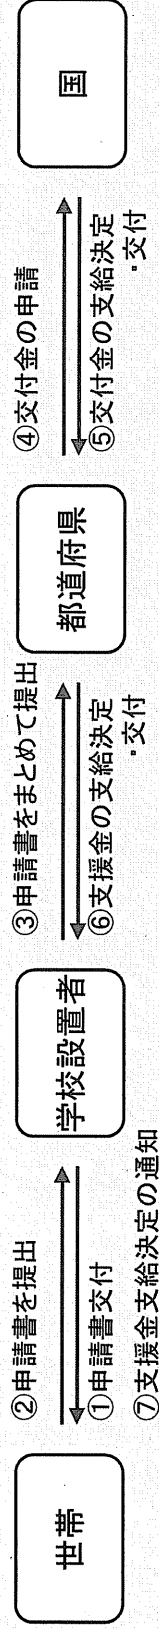 世帯
②申請書を提出
①申請書交付
⑦支援金支給決定の通知
学校設置者
③申請書をまとめて提出
⑥支援金の支給決定
・交付
都道府県
④交付金の申請
⑤交付金の支給決定
・交付
国